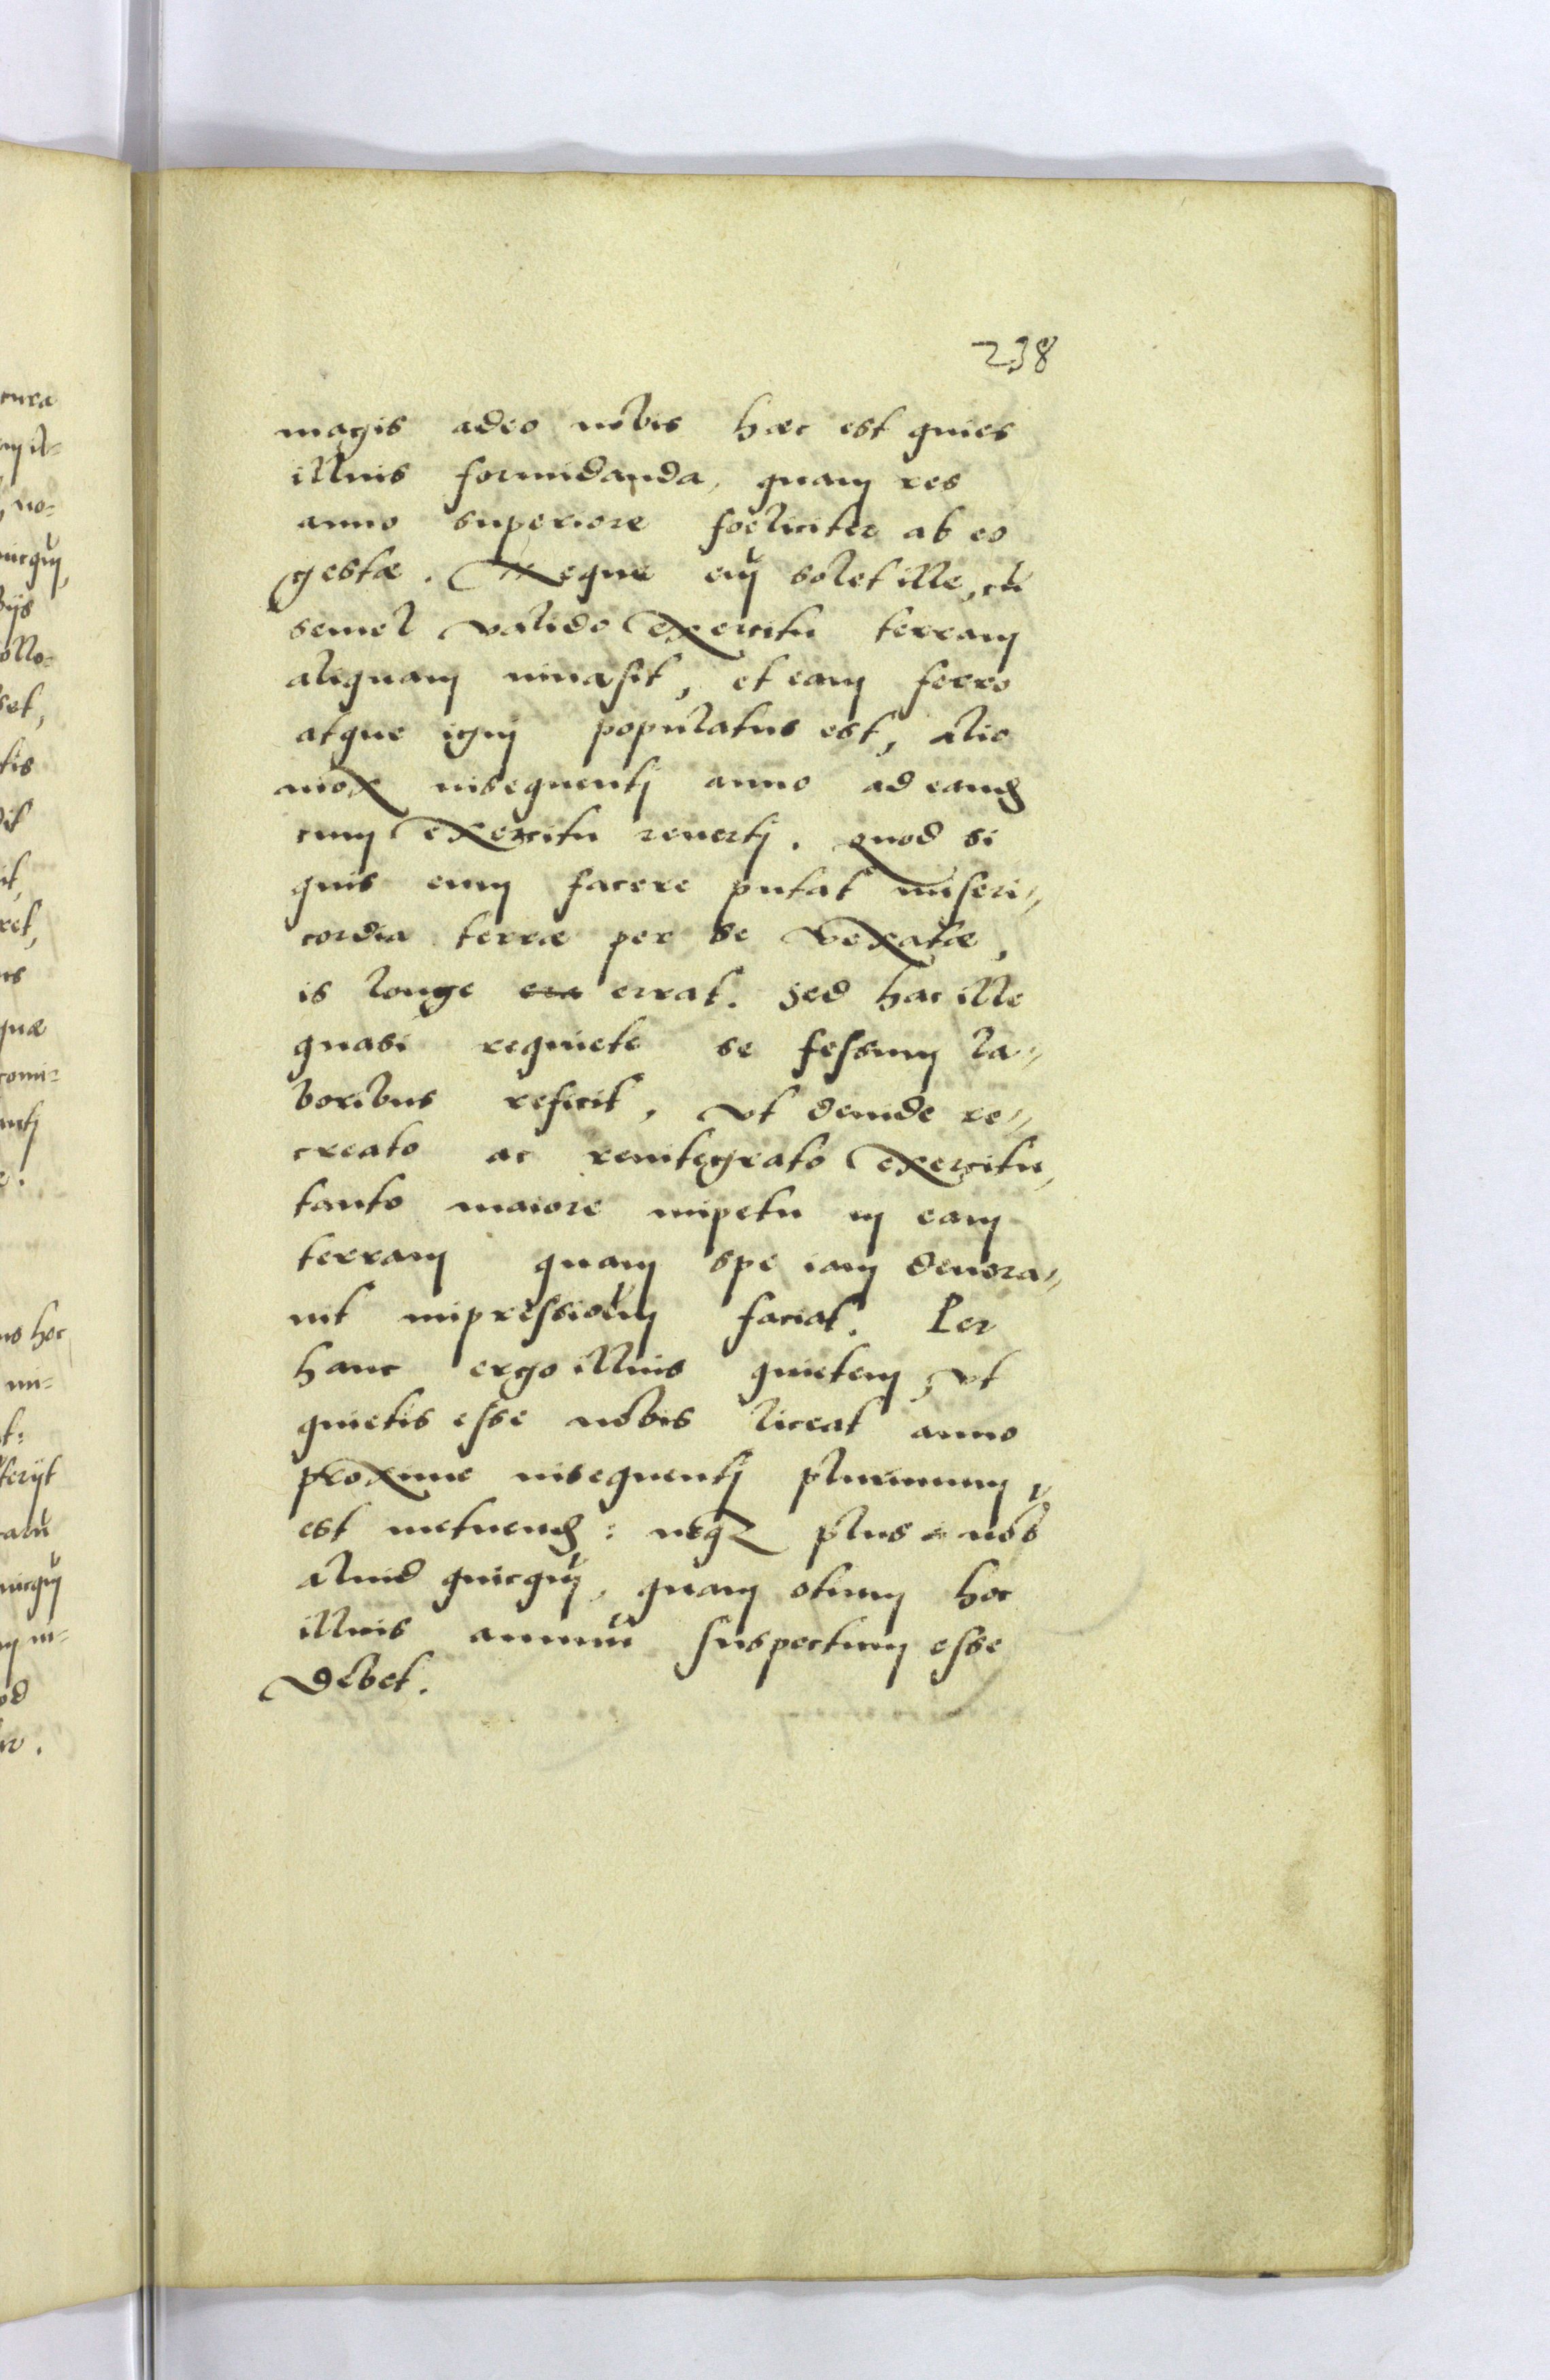 238
magis adeo nobis hæc est quies
illius formidanda, quam res
anno superiore foeliciter ab eo
gestæ. Neque em̃ solet ille, cũ
semel valido exercitu terram
aliquam inuasit, et eam ferro
atque igni populatus est, alio
mox insequenti anno ad eand
cum exercitu reuerti. quod si
quis eum facere putat miseri„
cordia terræ per se vexatæ,
is longe era errat. Sed hac ille
quasi requiete se fessum la„
boribus reficit, vt deinde re„
creato ac reintegrato exercitu,
tanto maiore impetu in eam
terram quam spe iam deuora„
uit impressionem faciat. Per
hanc ergo illius quietem, vt
quietis esse nobis liceat anno
proxime insequenti plurimum
est metuend: neqz plus nob
aliud quicquã, quam otium hoc
illius annuũ suspectum esse
Debet.
cura
no=
uicquã,
ijs
ollo=
set,
tis
it,
ret,
us
quæ
comi=
nti
us hoc
ni=
t=
terijt
uicquã
in=
od